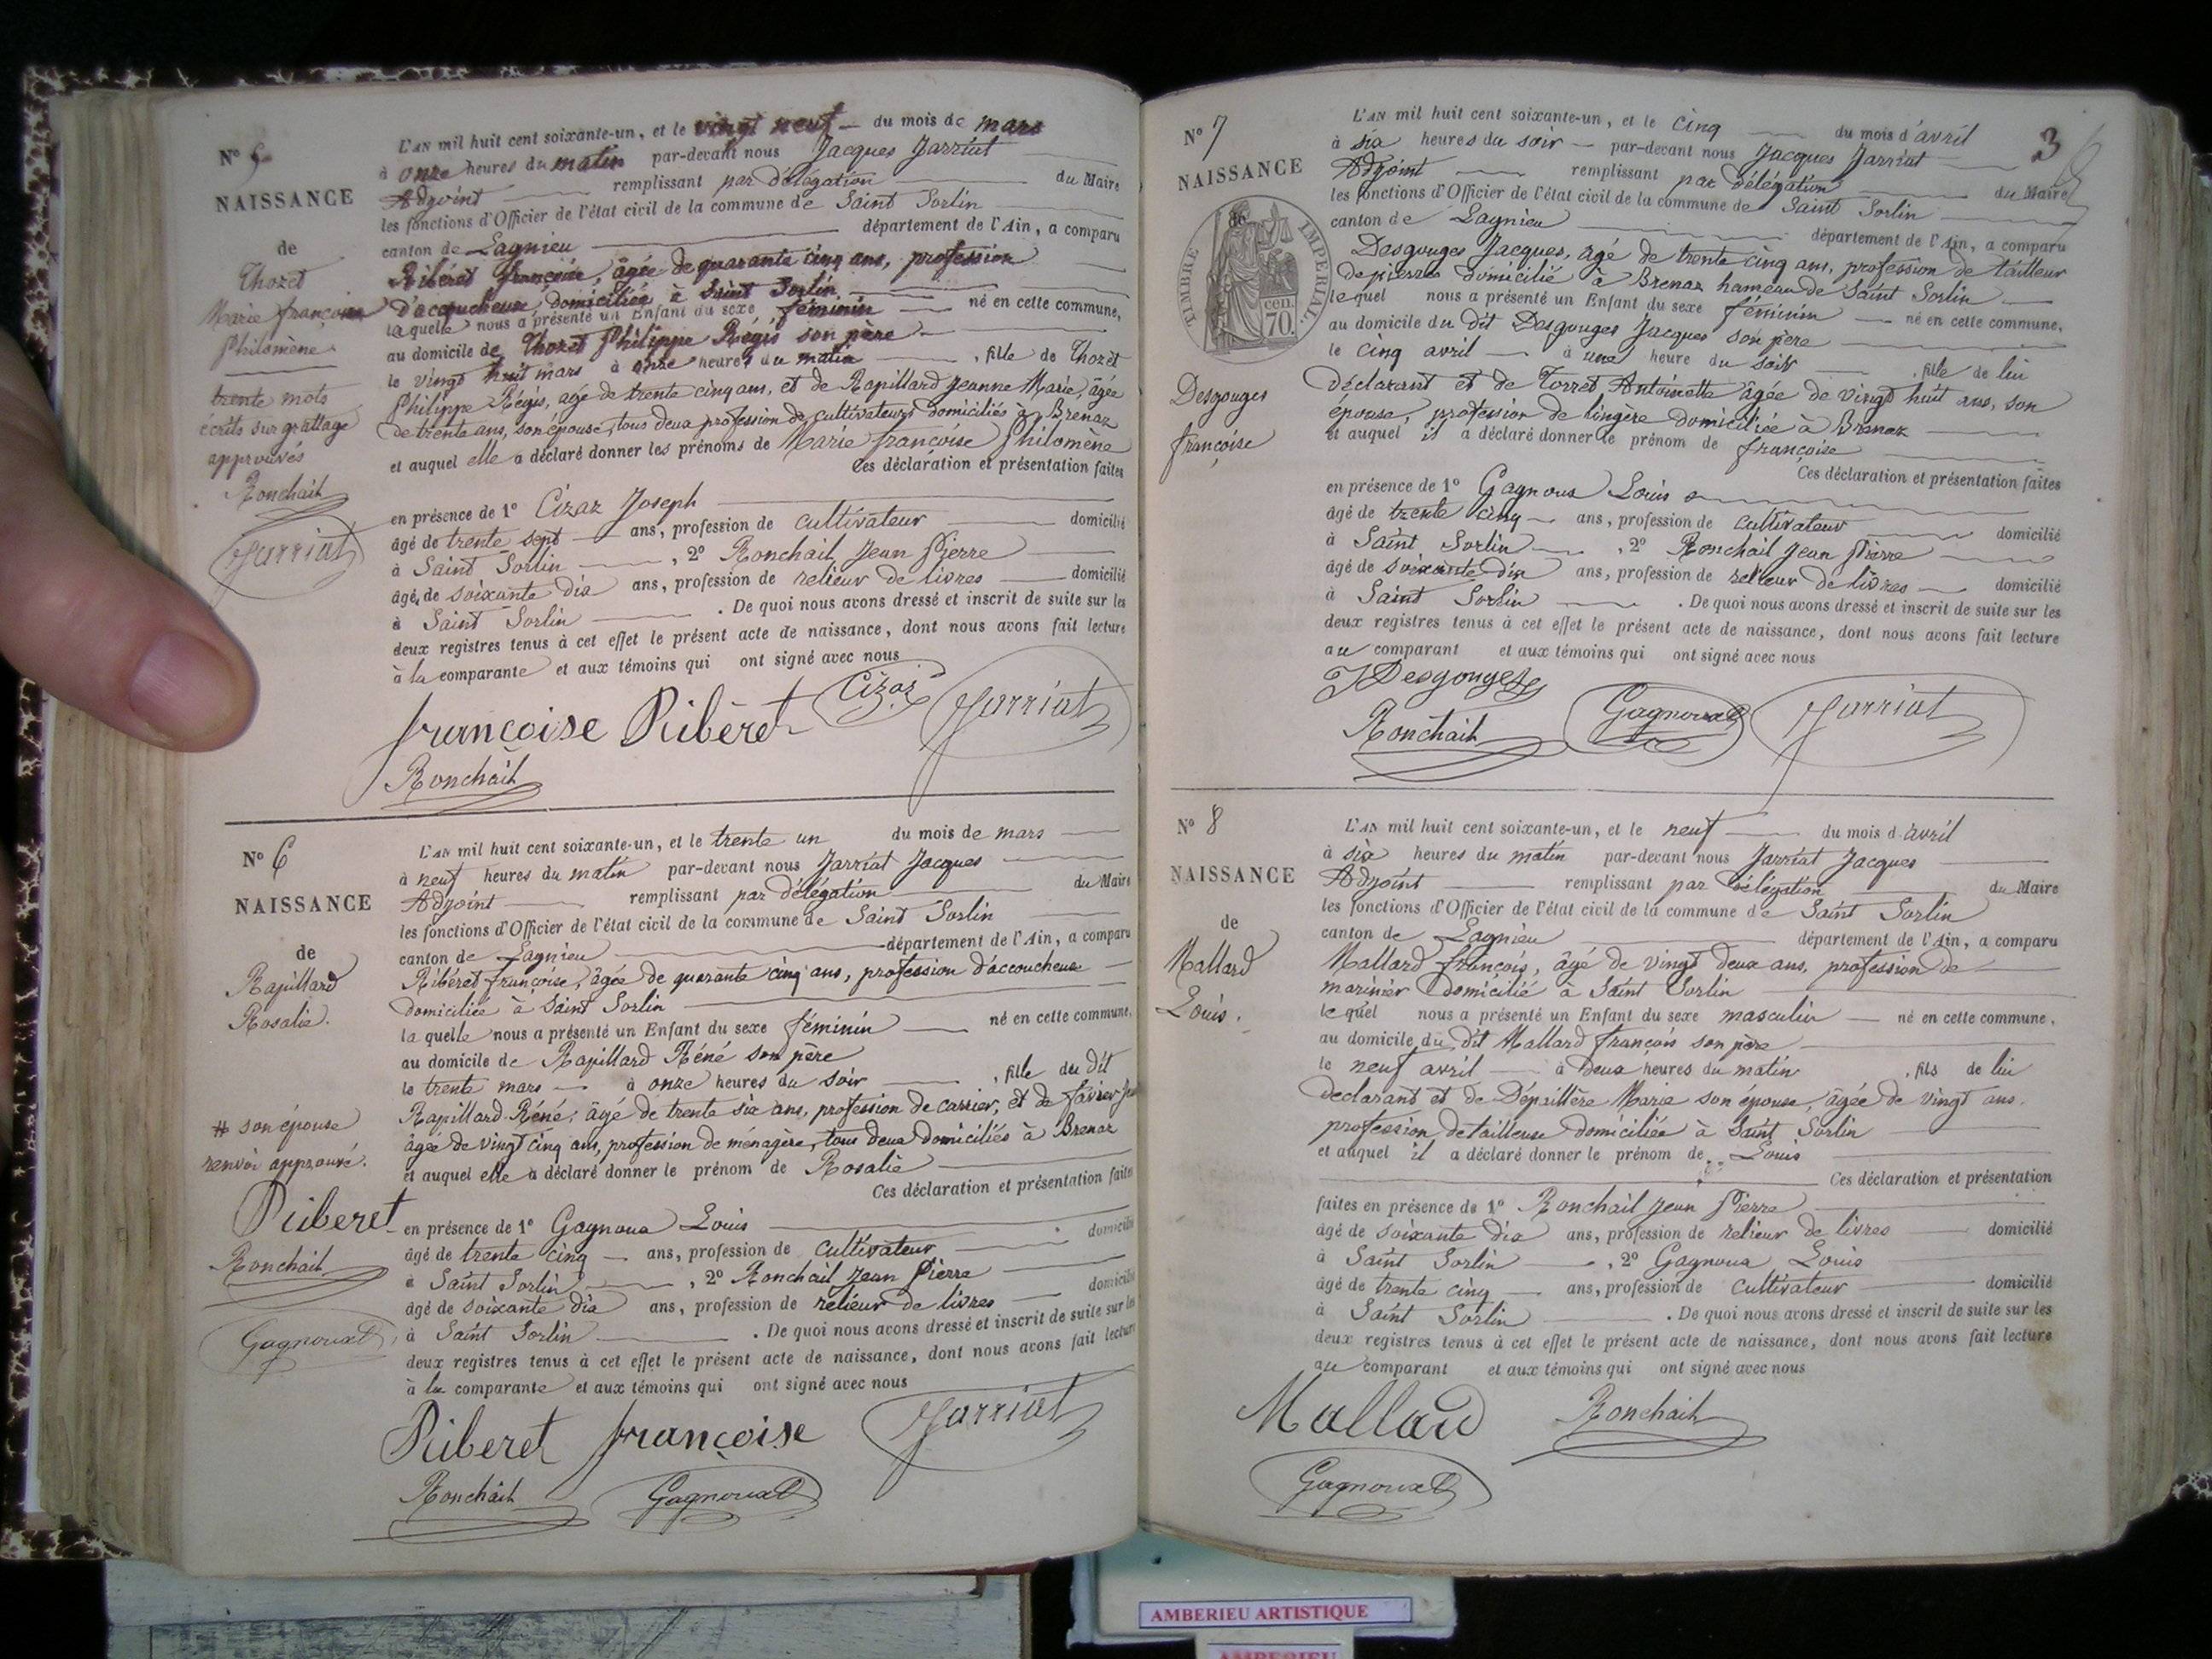 N° 5
NAISSANCE
de
Thozet
Marie françoise
Philomène
trente mots
écrits sur grattage
approuvés
Ronchail
Jarriat
L'AN mil huit cent soixante-un, et le vingt neuf du mois de mars
à onze heures du matin par-devant nous Jacques Jarriat
Adjoint remplissant par délégation du Maire
les fonctions d'Officier de l'état civil de la commune de Saint Sorlin
canton de Lagnieu département de l'Ain, a comparu
Ribéret françoise, âgée de quarante cinq ans, profession
d'accoucheuse domiciliée à Saint Sorlin
laquelle nous a présenté un Enfant du sexe féminin né en cette commune,
au domicile de Thozet Philippe Régis son père
le vingt huit mars à onze heures du matin, fille de Thozet
Philippe Régis, âgé de trente cinq ans, et de Rapillard Jeanne Marie, âgée
de trente ans, son épouse, tous deux profession de cultivateurs domiciliés à Brenaz
et auquel elle a déclaré donner les prénoms de Marie françoise Philomène
Ces déclaration et présentation faites
en présence de 1° Cizaz Joseph
âgé de trente sept ans, profession de cultivateur domicilié
à Saint Sorlin, 2° Ronchail Jean Pierre
âgé de soixante dix ans, profession de relieur de livres domicilié
à Saint Sorlin. De quoi nous avons dressé et inscrit de suite sur les
deux registres tenus à cet effet le présent acte de naissance, dont nous avons fait lecture
à la comparante et aux témoins qui ont signé avec nous
françoise Ribèret Cizaz Jarriat
Ronchail
N° 6
NAISSANCE
de
Rapillard
Rosalie.
# son épouse
renvoi approuvé.
Riberet
Ronchail
Gagnoux
L'AN mil huit cent soixante-un, et le trente un du mois de mars
à neuf heures du matin par-devant nous Jarriat Jacques
Adjoint remplissant par délégation du Maire
les fonctions d'Officier de l'état civil de la commune de Saint Sorlin
canton de Lagnieu département de l'Ain, a comparu
Ribéret françoise, âgée de quarante cinq ans, profession d'accoucheuse
domiciliée à Saint Sorlin
laquelle nous a présenté un Enfant du sexe féminin né en cette commune,
au domicile de Rapillard Réné son père
le trente mars à onze heures du soir, fille du dit
Rapillard Réné, âgé de trente six ans, profession de carrier, et de favier
âgée de vingt cinq ans, profession de ménagère, tous deux domiciliés à Brenaz
et auquel elle a déclaré donner le prénom de Rosalie
Ces déclaration et présentation faites
en présence de 1° Gagnoux Louis
âgé de trente cinq ans, profession de cultivateur domicilié
à Saint Sorlin, 2° Ronchail Jean Pierre
âgé de soixante dix ans, profession de relieur de livres domicilié
à Saint Sorlin. De quoi nous avons dressé et inscrit de suite sur les
deux registres tenus à cet effet le présent acte de naissance, dont nous avons fait lecture
à la comparante et aux témoins qui ont signé avec nous
Riberet françoise Jarriat
Ronchail Gagnoux
3
N° 7
NAISSANCE
TIMBRE IMPERIAL
70 cen.
Desgouges
françoise
L'AN mil huit cent soixante-un, et le cinq du mois d'avril
à six heures du soir par-devant nous Jacques Jarriat
Adjoint remplissant par délégation du Maire
les fonctions d'Officier de l'état civil de la commune de Saint Sorlin
canton de Lagnieu département de l'Ain, a comparu
Desgouges Jacques, âgé de trente cinq ans, profession de tailleur
de pierres domicilié à Brenaz hameau de Saint Sorlin
lequel nous a présenté un Enfant du sexe féminin né en cette commune,
au domicile du dit Desgouges Jacques son père
le cinq avril à une heure du soir, fille de lui
déclarant et de Torret Antoinette âgée de vingt huit ans, son
épouse, profession de lingère domiciliée à Brenaz
et auquel il a déclaré donner le prénom de françoise
Ces déclaration et présentation faites
en présence de 1° Gagnoux Louis
âgé de trente cinq ans, profession de cultivateur domicilié
à Saint Sorlin, 2° Ronchail Jean Pierre
âgé de soixante dix ans, profession de relieur de livres domicilié
à Saint Sorlin. De quoi nous avons dressé et inscrit de suite sur les
deux registres tenus à cet effet le présent acte de naissance, dont nous avons fait lecture
au comparant et aux témoins qui ont signé avec nous
J Desgouges
Ronchail Gagnoux Jarriat
N° 8
NAISSANCE
de
Mallard
Louis.
L'AN mil huit cent soixante-un, et le neuf du mois d'avril
à six heures du matin par-devant nous Jarriat Jacques
Adjoint remplissant par délégation du Maire
les fonctions d'Officier de l'état civil de la commune de Saint Sorlin
canton de Lagnieu département de l'Ain, a comparu
Mallard françois, âgé de vingt deux ans, profession de
marinier domicilié à Saint Sorlin
lequel nous a présenté un Enfant du sexe masculin né en cette commune,
au domicile du dit Mallard françois son père
le neuf avril à deux heures du matin, fils de lui
déclarant et de Dépaillère Marie son épouse, âgée de vingt ans,
profession de tailleuse domiciliée à Saint Sorlin
et auquel il a déclaré donner le prénom de Louis
Ces déclaration et présentation
faites en présence de 1° Ronchail Jean Pierre
âgé de soixante dix ans, profession de relieur de livres domicilié
à Saint Sorlin, 2° Gagnoux Louis
âgé de trente cinq ans, profession de cultivateur domicilié
à Saint Sorlin. De quoi nous avons dressé et inscrit de suite sur les
deux registres tenus à cet effet le présent acte de naissance, dont nous avons fait lecture
au comparant et aux témoins qui ont signé avec nous
Mallard Ronchail
Gagnoux
AMBERIEU ARTISTIQUE
AMBERIEU